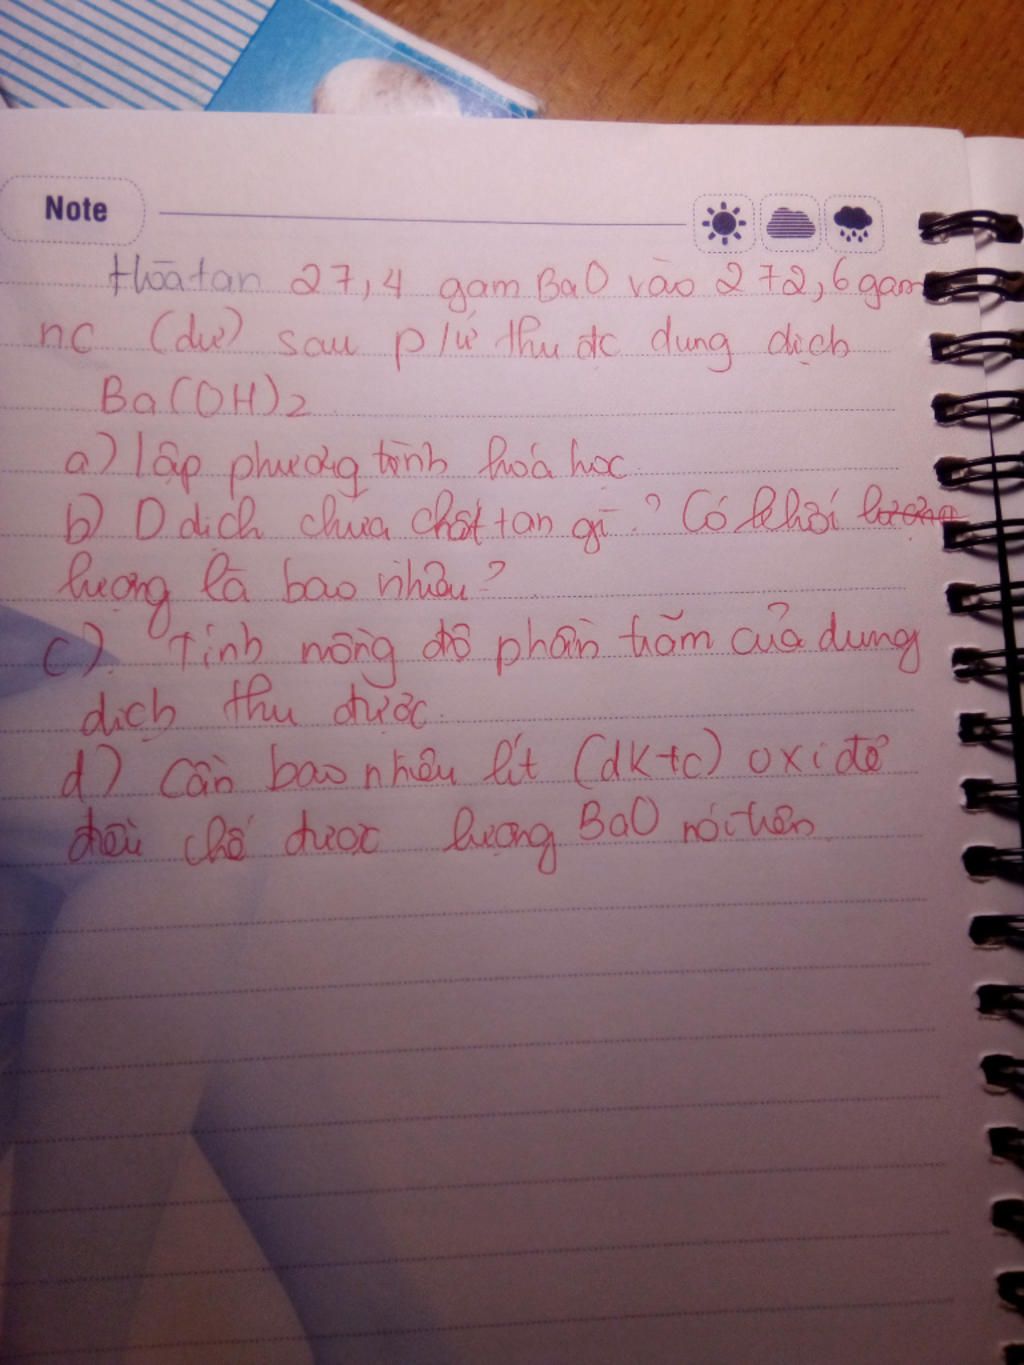 Note
Hòa tan 27,4 gam BaO vào 272,6 gam
nc (dư) sau p/ứ thu đc dung dịch
Ba(OH)2
a) lập phương trình hoá học
b) D dịch chứa chất tan gì? Có khối lượng
lượng là bao nhiêu?
c). Tính nồng độ phần trăm của dung
dịch thu được.
d) Cần bao nhiêu lít (đktc) oxi để
điều chế được lượng BaO nói trên.